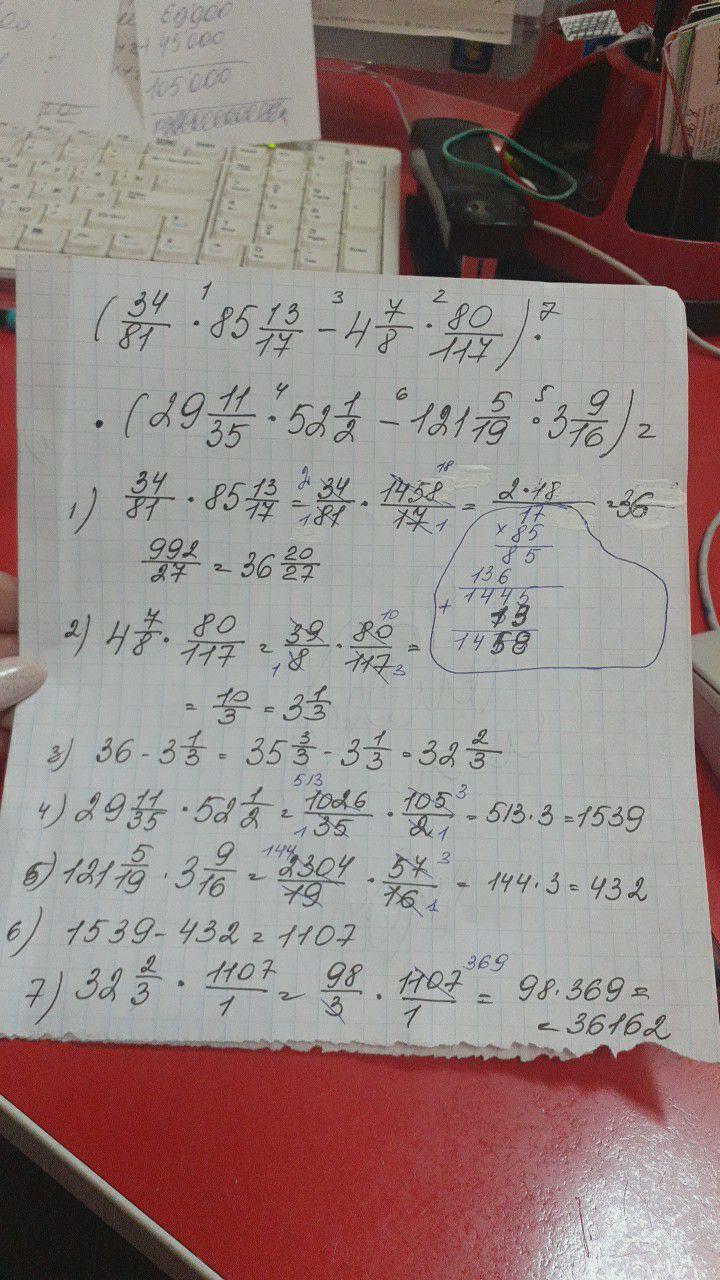 60000
45000
105000
( 34/81 ·¹ 85 13/17 -³ 4 7/8 ·² 80/117 ) ·⁷
· ( 29 11/35 ·⁴ 52 1/2 -⁶ 121 5/19 ·⁵ 3 9/16 ) =
1) 34/81 · 85 13/17 = 34/81 · 1458/17 = 2·18 = 36
2 18
1 1
992/27 = 36 20/27
17
× 85
85
136
1445
+ 13
1458
2) 4 7/8 · 80/117 = 39/8 · 80/117 =
10
1 3
= 10/3 = 3 1/3
3) 36 - 3 1/3 = 35 3/3 - 3 1/3 = 32 2/3
4) 29 11/35 · 52 1/2 = 1026/35 · 105/2 = 513·3 = 1539
513 3
1 1
5) 121 5/19 · 3 9/16 = 2304/19 · 57/16 = 144·3 = 432
144 3
1
6) 1539 - 432 = 1107
7) 32 2/3 · 1107/1 = 98/3 · 1107/1 = 98·369 =
369
= 36162